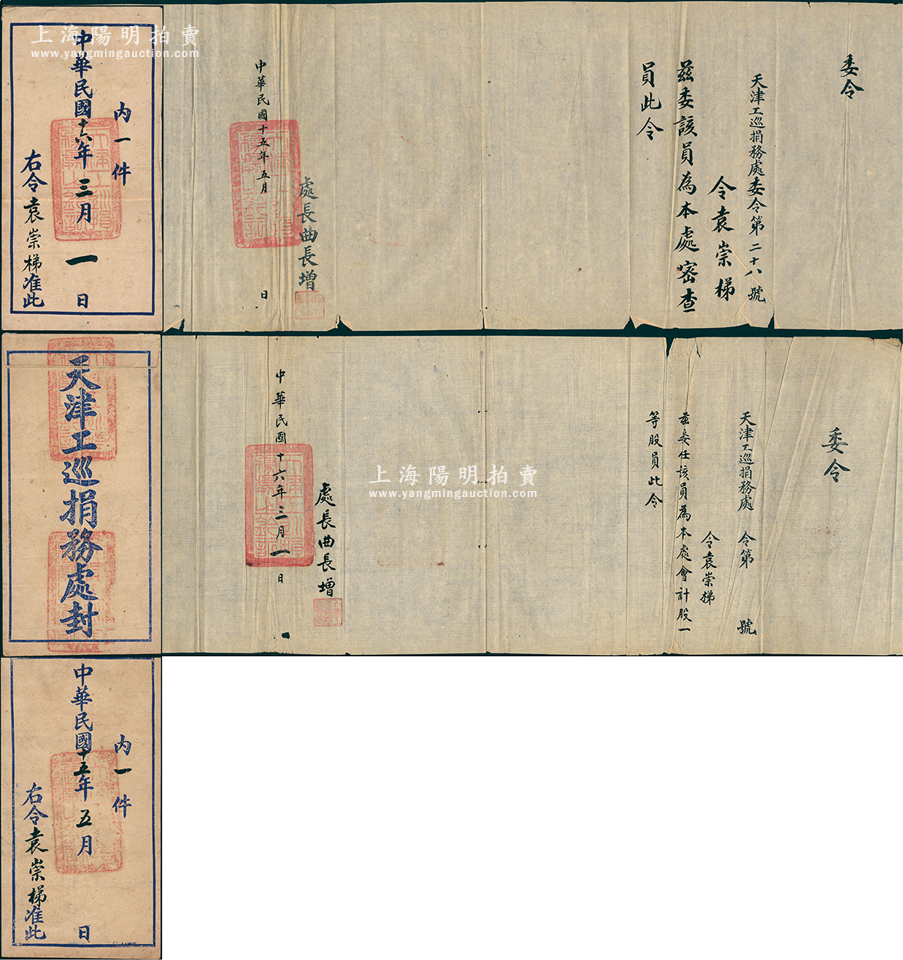 上海陽明拍賣
www.yangmingauction.com
內一件
中華民國十六年三月一日
右令袁崇梯准此
委令
天津工巡捐務處委令第二十八號
令袁崇梯
茲委該員為本處密查
員此令
處長曲長增
中華民國十五年五月 日
天津工巡捐務處封
委令
天津工巡捐務處 令第 號
令袁崇梯
茲委任該員為本處會計股一
等股員此令
處長曲長增
中華民國十六年三月一日
上海陽明拍賣
www.yangmingauction.com
內一件
中華民國十五年五月 日
右令袁崇梯准此